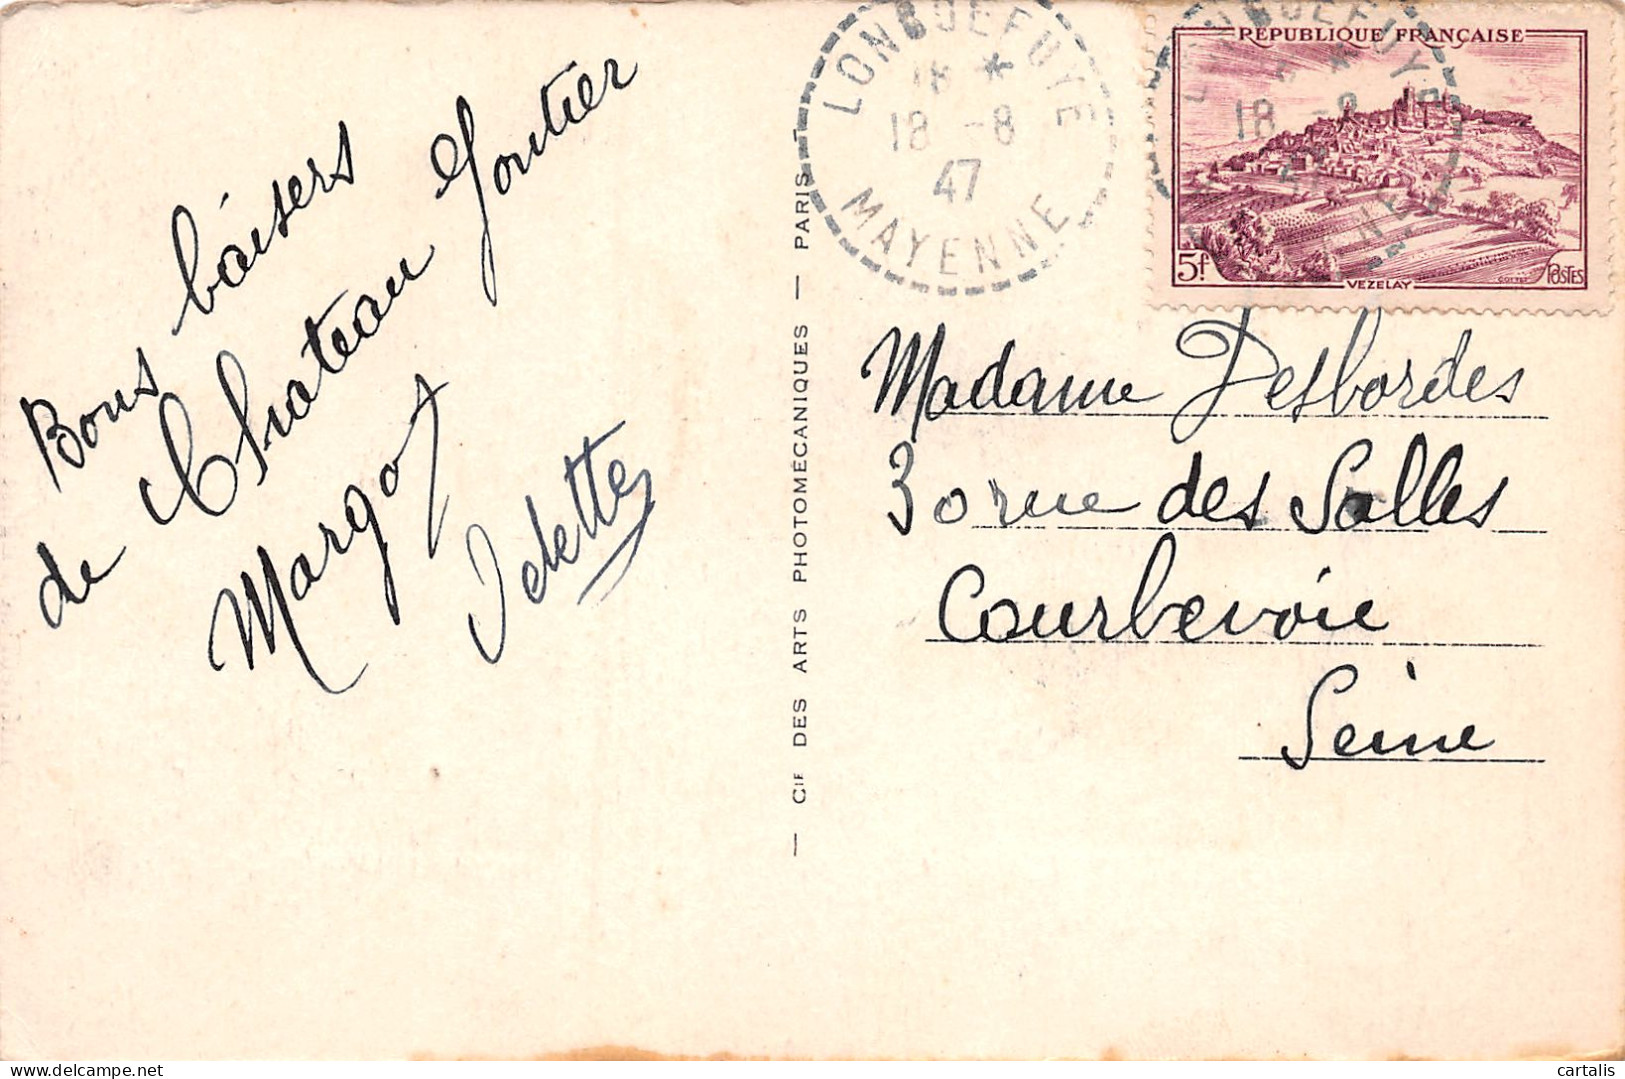 Bons baisers
de Château Gontier
Margot
Odette
CIE DES ARTS PHOTOMÉCANIQUES — PARIS
LONGUEFUYE
18 *
18 -8
47
MAYENNE
REPUBLIQUE FRANÇAISE
18 -8
5f
VEZELAY
POSTES
Madame Desbordes
30 rue des Salles
Courbevoie
Seine
delcampe.net
cartalis